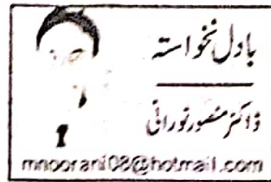 بادل نخواستہ
ڈاکٹر منصور نورانی
mnoorani08@hotmail.com